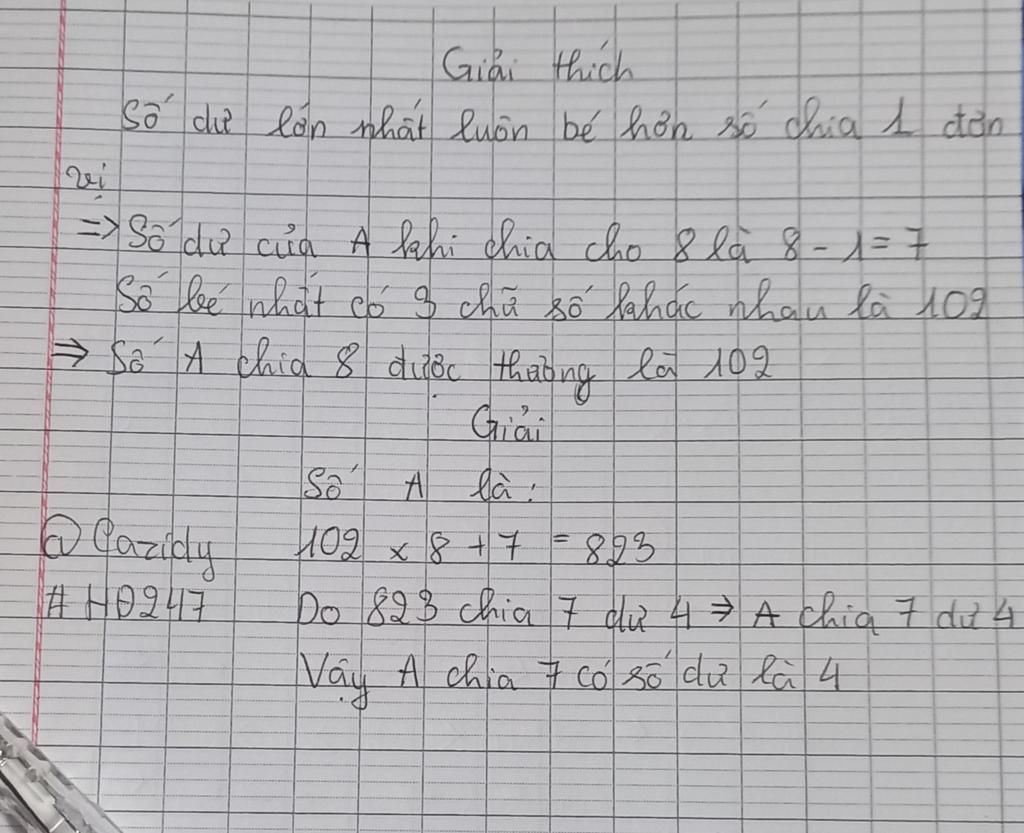 Giải thích
Số dư lớn nhất luôn bé hơn số chia 1 đơn
vị
=> Số dư của A khi chia cho 8 là 8 - 1 = 7
Số bé nhất có 3 chữ số khác nhau là 102
=> Số A chia 8 được thương là 102
Giải
Số A là:
@Cazidy 102 x 8 + 7 = 823
#H0247 Do 823 chia 7 dư 4 => A chia 7 dư 4
Vậy A chia 7 có số dư là 4